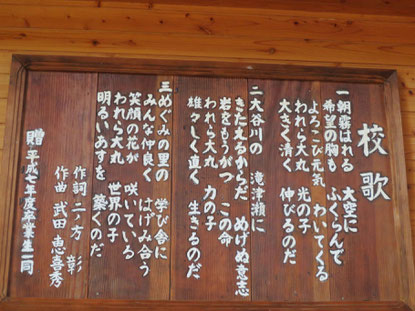 校歌
一 朝霧はれる 大空に
希望の胸も ふくらんで
よろこび元気 わいてくる
われら大丸 光の子
大きく清く 伸びるのだ
二 大谷川の 滝津瀬に
きたえるからだ めげぬ意志
岩をもうがつ この命
われら大丸 力の子
雄々しく直く 生きるのだ
三 めぐみの里の 学び舎に
みんな仲良く はげみ合う
笑顔の花が 咲いている
われら大丸 世界の子
明るいあすを 築くのだ
作詞 二ノ方 彰
作曲 武田 恵喜秀
贈 平成七年度卒業生一同